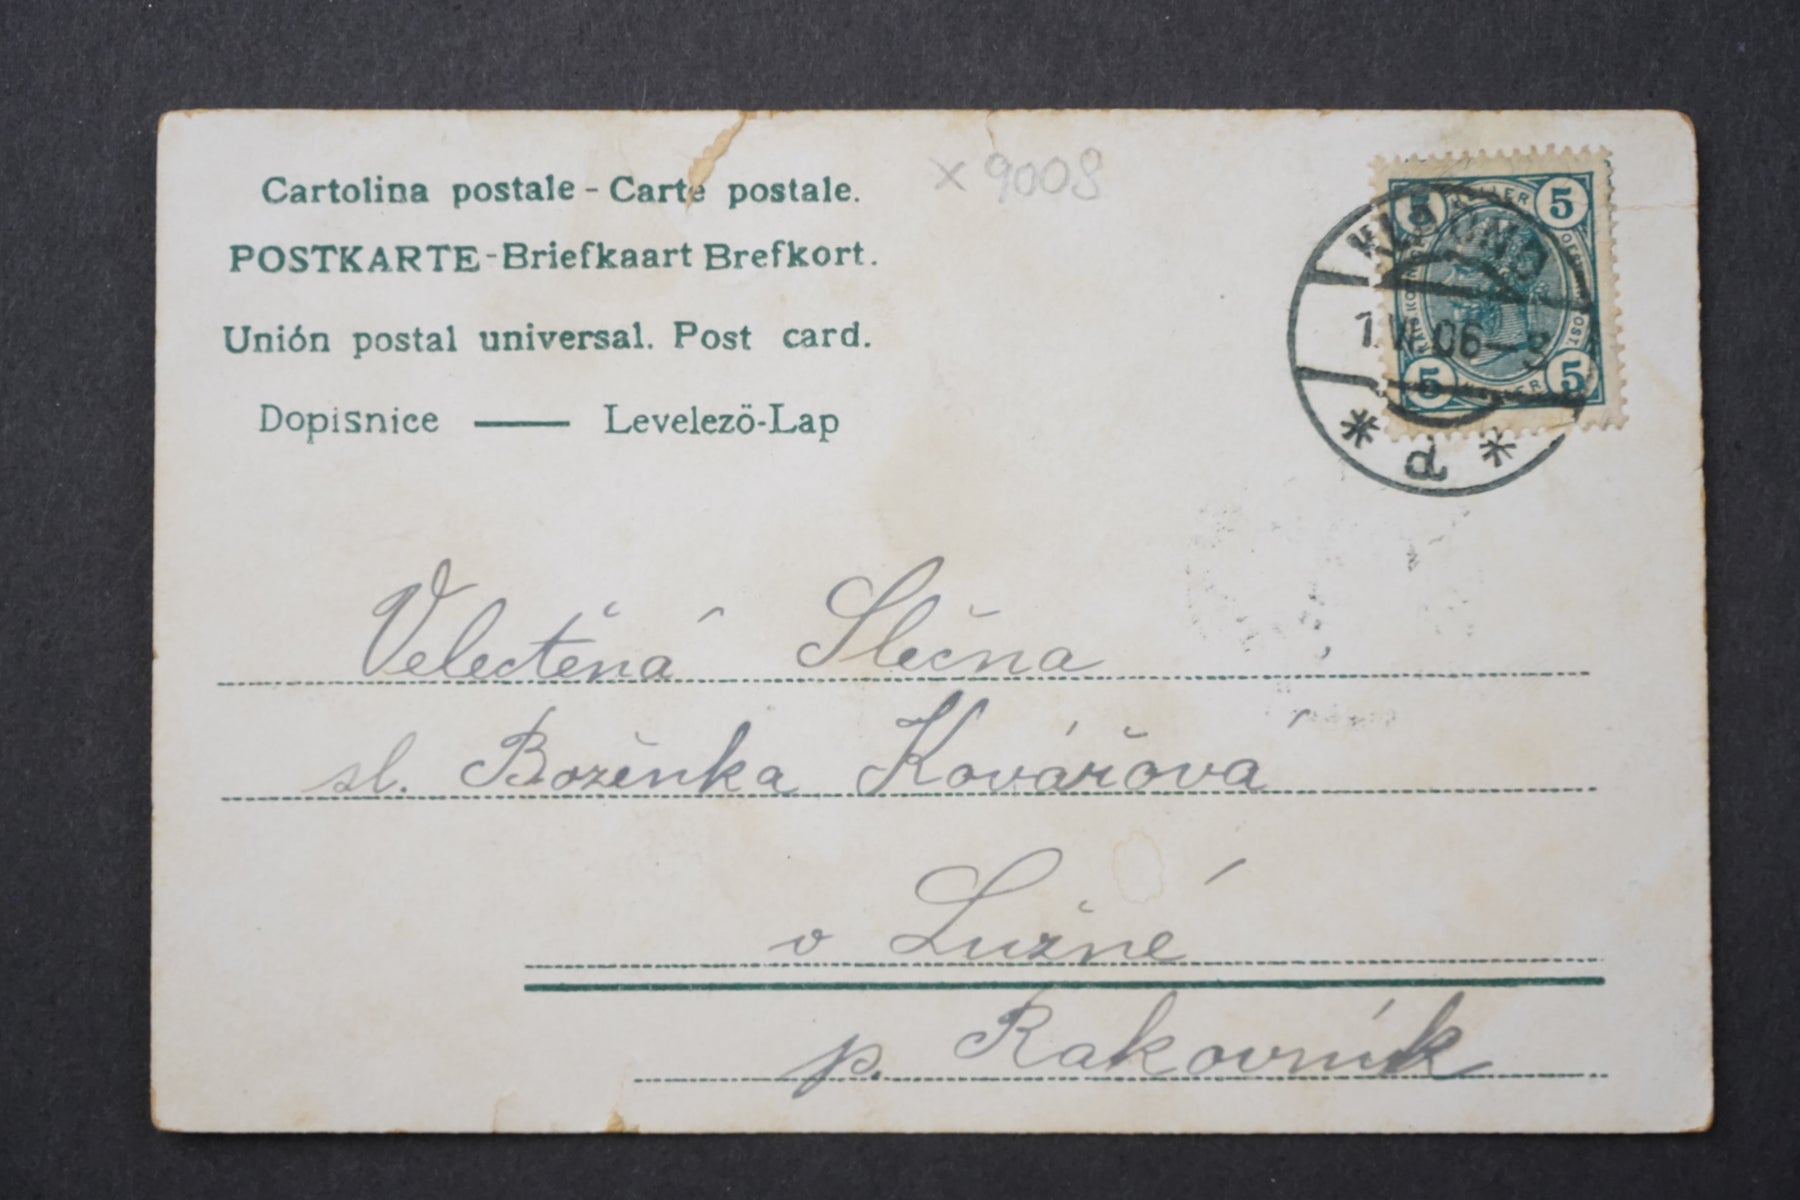 Cartolina postale - Carte postale.
× 9008
POSTKARTE - Briefkaart Brefkort.
Unión postal universal. Post card.
Dopisnice — Levelező-Lap
5 HELLER 5
5 HELLER 5
1. VI. 06 - 8
* d *
Velectěná Slečna
sl. Boženka Kovářová
v Lužné
p. Rakovník